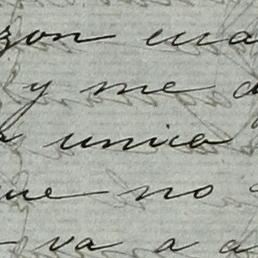 zon cua
y me d
a unica
ue no
va a a